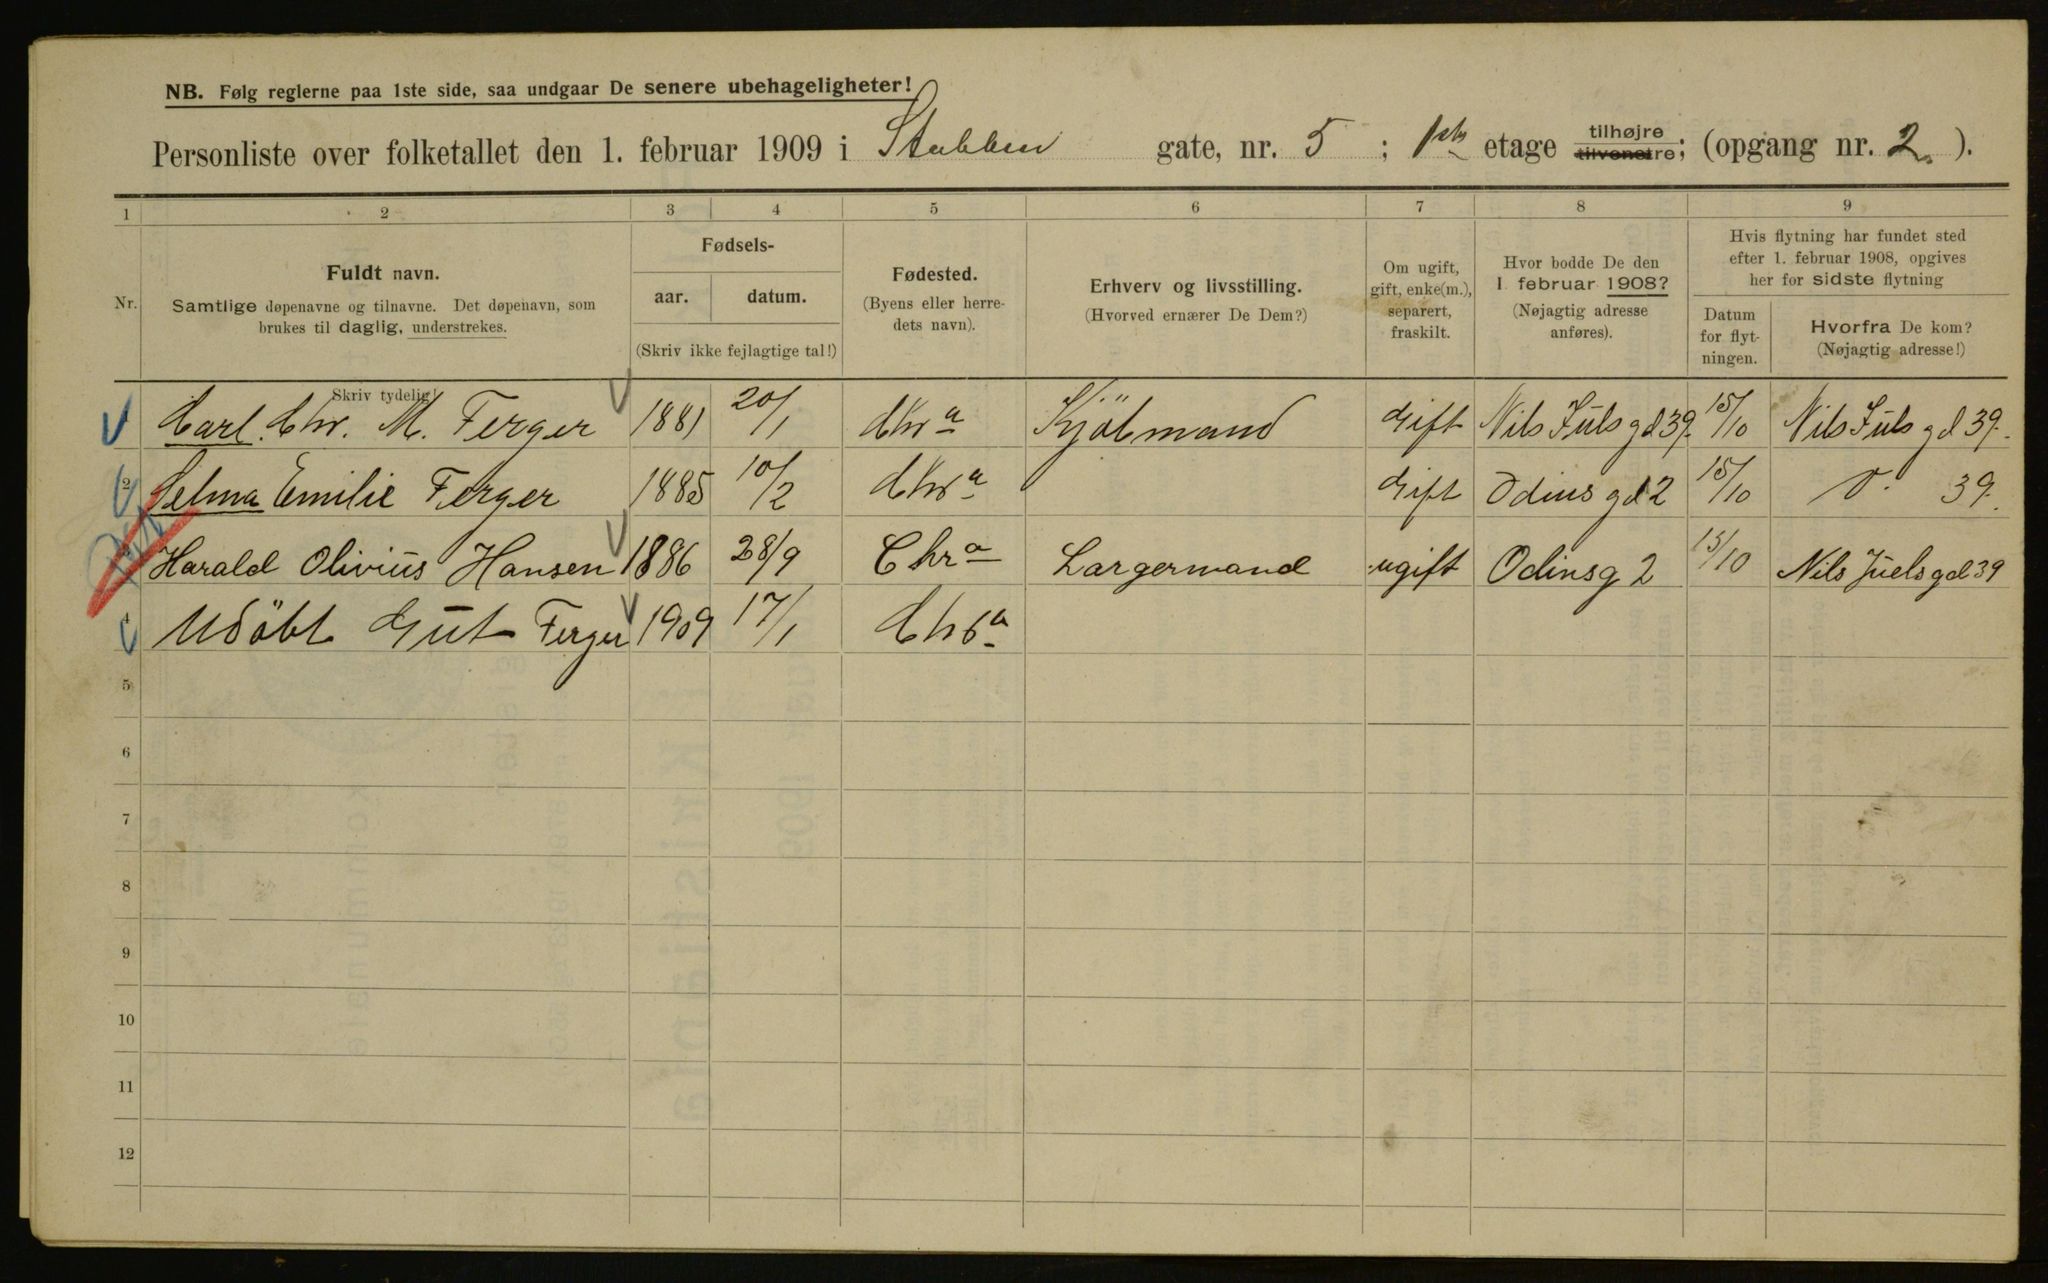 NB. Følg reglerne paa 1ste side, saa undgaar De senere ubehageligheter!
Personliste over folketallet den 1. februar 1909 i Stubben gate, nr. 5 ; 1ste etage tilhøjre tilvenstre; (opgang nr. 2. ).
1 2 3 4 5 6 7 8 9
Nr.
Fuldt navn.
Samtlige døpenavne og tilnavne. Det døpenavn, som
brukes til daglig, understrekes.
Skriv tydelig
Fødsels-
aar. datum.
(Skriv ikke fejlagtige tal!)
Fødested.
(Byens eller herre-
dets navn).
Erhverv og livsstilling.
(Hvorved ernærer De Dem?)
Om ugift,
gift, enke(m.),
separert,
fraskilt.
Hvor bodde De den
1. februar 1908?
(Nøjagtig adresse
anføres).
Hvis flytning har fundet sted
efter 1. februar 1908, opgives
her for sidste flytning
Datum
for flyt-
ningen.
Hvorfra De kom?
(Nøjagtig adresse!)
1 Carl. Chr. M. Ferger 1881 20/1 Chra Kjöbmand Gift Nils Juls gd 39. 15/10 Nils Juls gd 39.
2 Selma Emilie Ferger 1885 10/2 Chra Gift Odins gd 2 15/10 39.
3 Harald Olivius Hansen 1886 28/9 Chra Largermand ugift Odinsg 2 15/10 Nils Juels gd 39
4 Udöbt Gut Ferger 1909 17/1 Chra
5
6
7
8
9
10
11
12